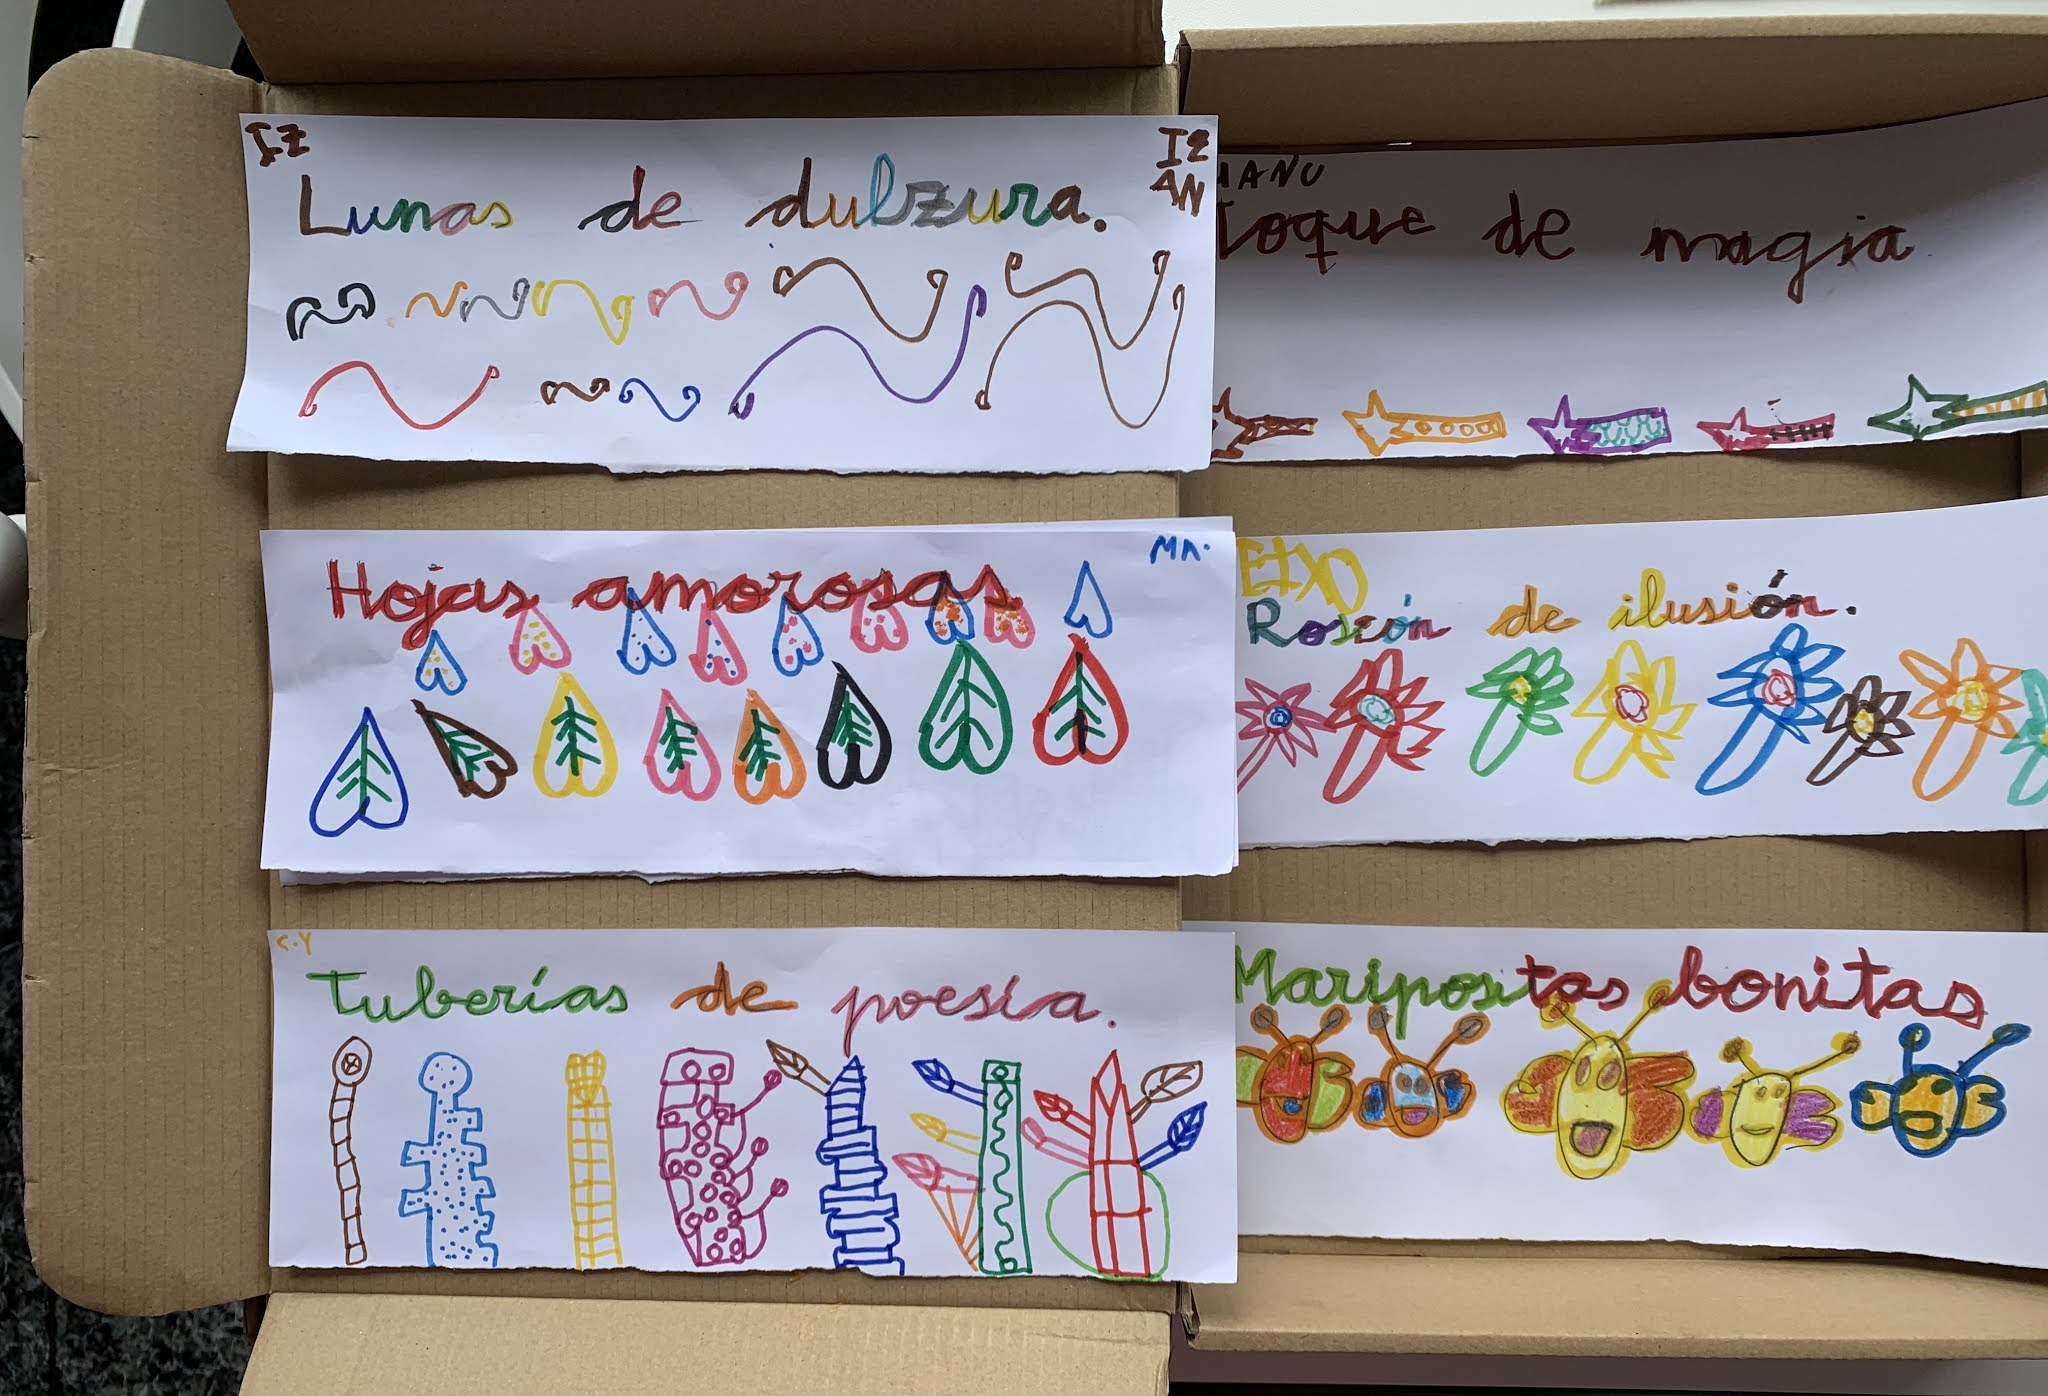 IZ
IZ
AN
Lunas de dulzura.
MANU
Toque de magia
MA.
Hojas amorosas
EIXO
Roción de ilusión.
C.Y
Tuberías de poesía.
Maripositas bonitas